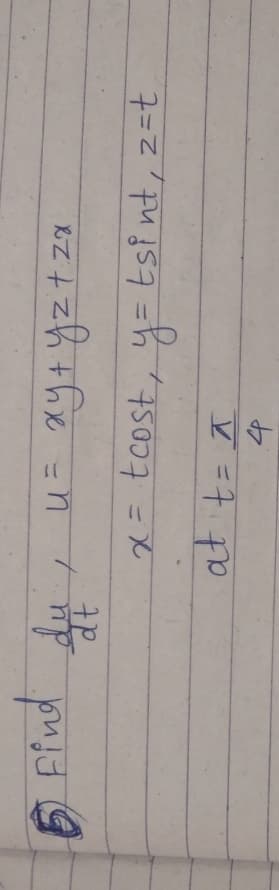 5) Find du/dt, u = xy + yz + zx
x = tcost, y = tsint, z=t
at t = π/4